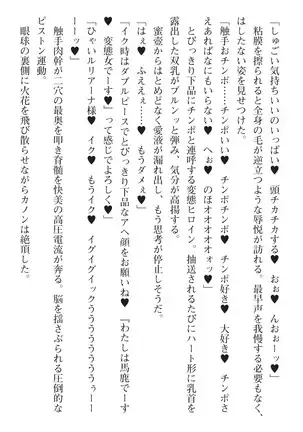 「しゅごい気持ちいいのいっぱい♥　頭チカチカする♥　おぉ♥　んおぉーっ♥」
粘膜を擦られると全身の毛が逆立つような辱悦が訪れる。最早声を我慢する必要もなく、
はしたない姿を見せつけた。
「触手おチンポ♥　チンポいい♥　チンポチンポ♥　チンポ好き♥　大好き♥　チンポさ
えあればなにもいらない♥　へぉ♥　のほオオオオオォッ♥」
とびっきり下品にチンポと連呼する変態ヒロイン。抽送されるたびにハート形に乳首を
露出した双乳がブルンッと弾み、気分が高揚する。
蜜壺からはとめどなく愛液が漏れだし、もう思考が停止しそうだ。
「はぁ♥　ふえぇぇ…♥　もうダメぇ♥」
「イク時はダブルピースでとびっきり下品なアヘ顔をお願いね♥　『わたしは馬鹿でーす
♥　変態女でーす♥』って感じでよろしく♥」
「ひゃいルリアーナ様♥　イク♥　もうイク♥　イグイグイックうううううううぅぅー
ーーッ♥」
触手肉幹が二穴の最奥を叩き脊髄を快美の高圧電流が奔る。脳を揺さぶられる圧倒的な
ピストン運動。
眼球の裏側に火花を飛び散らせながらカノンは絶頂した。